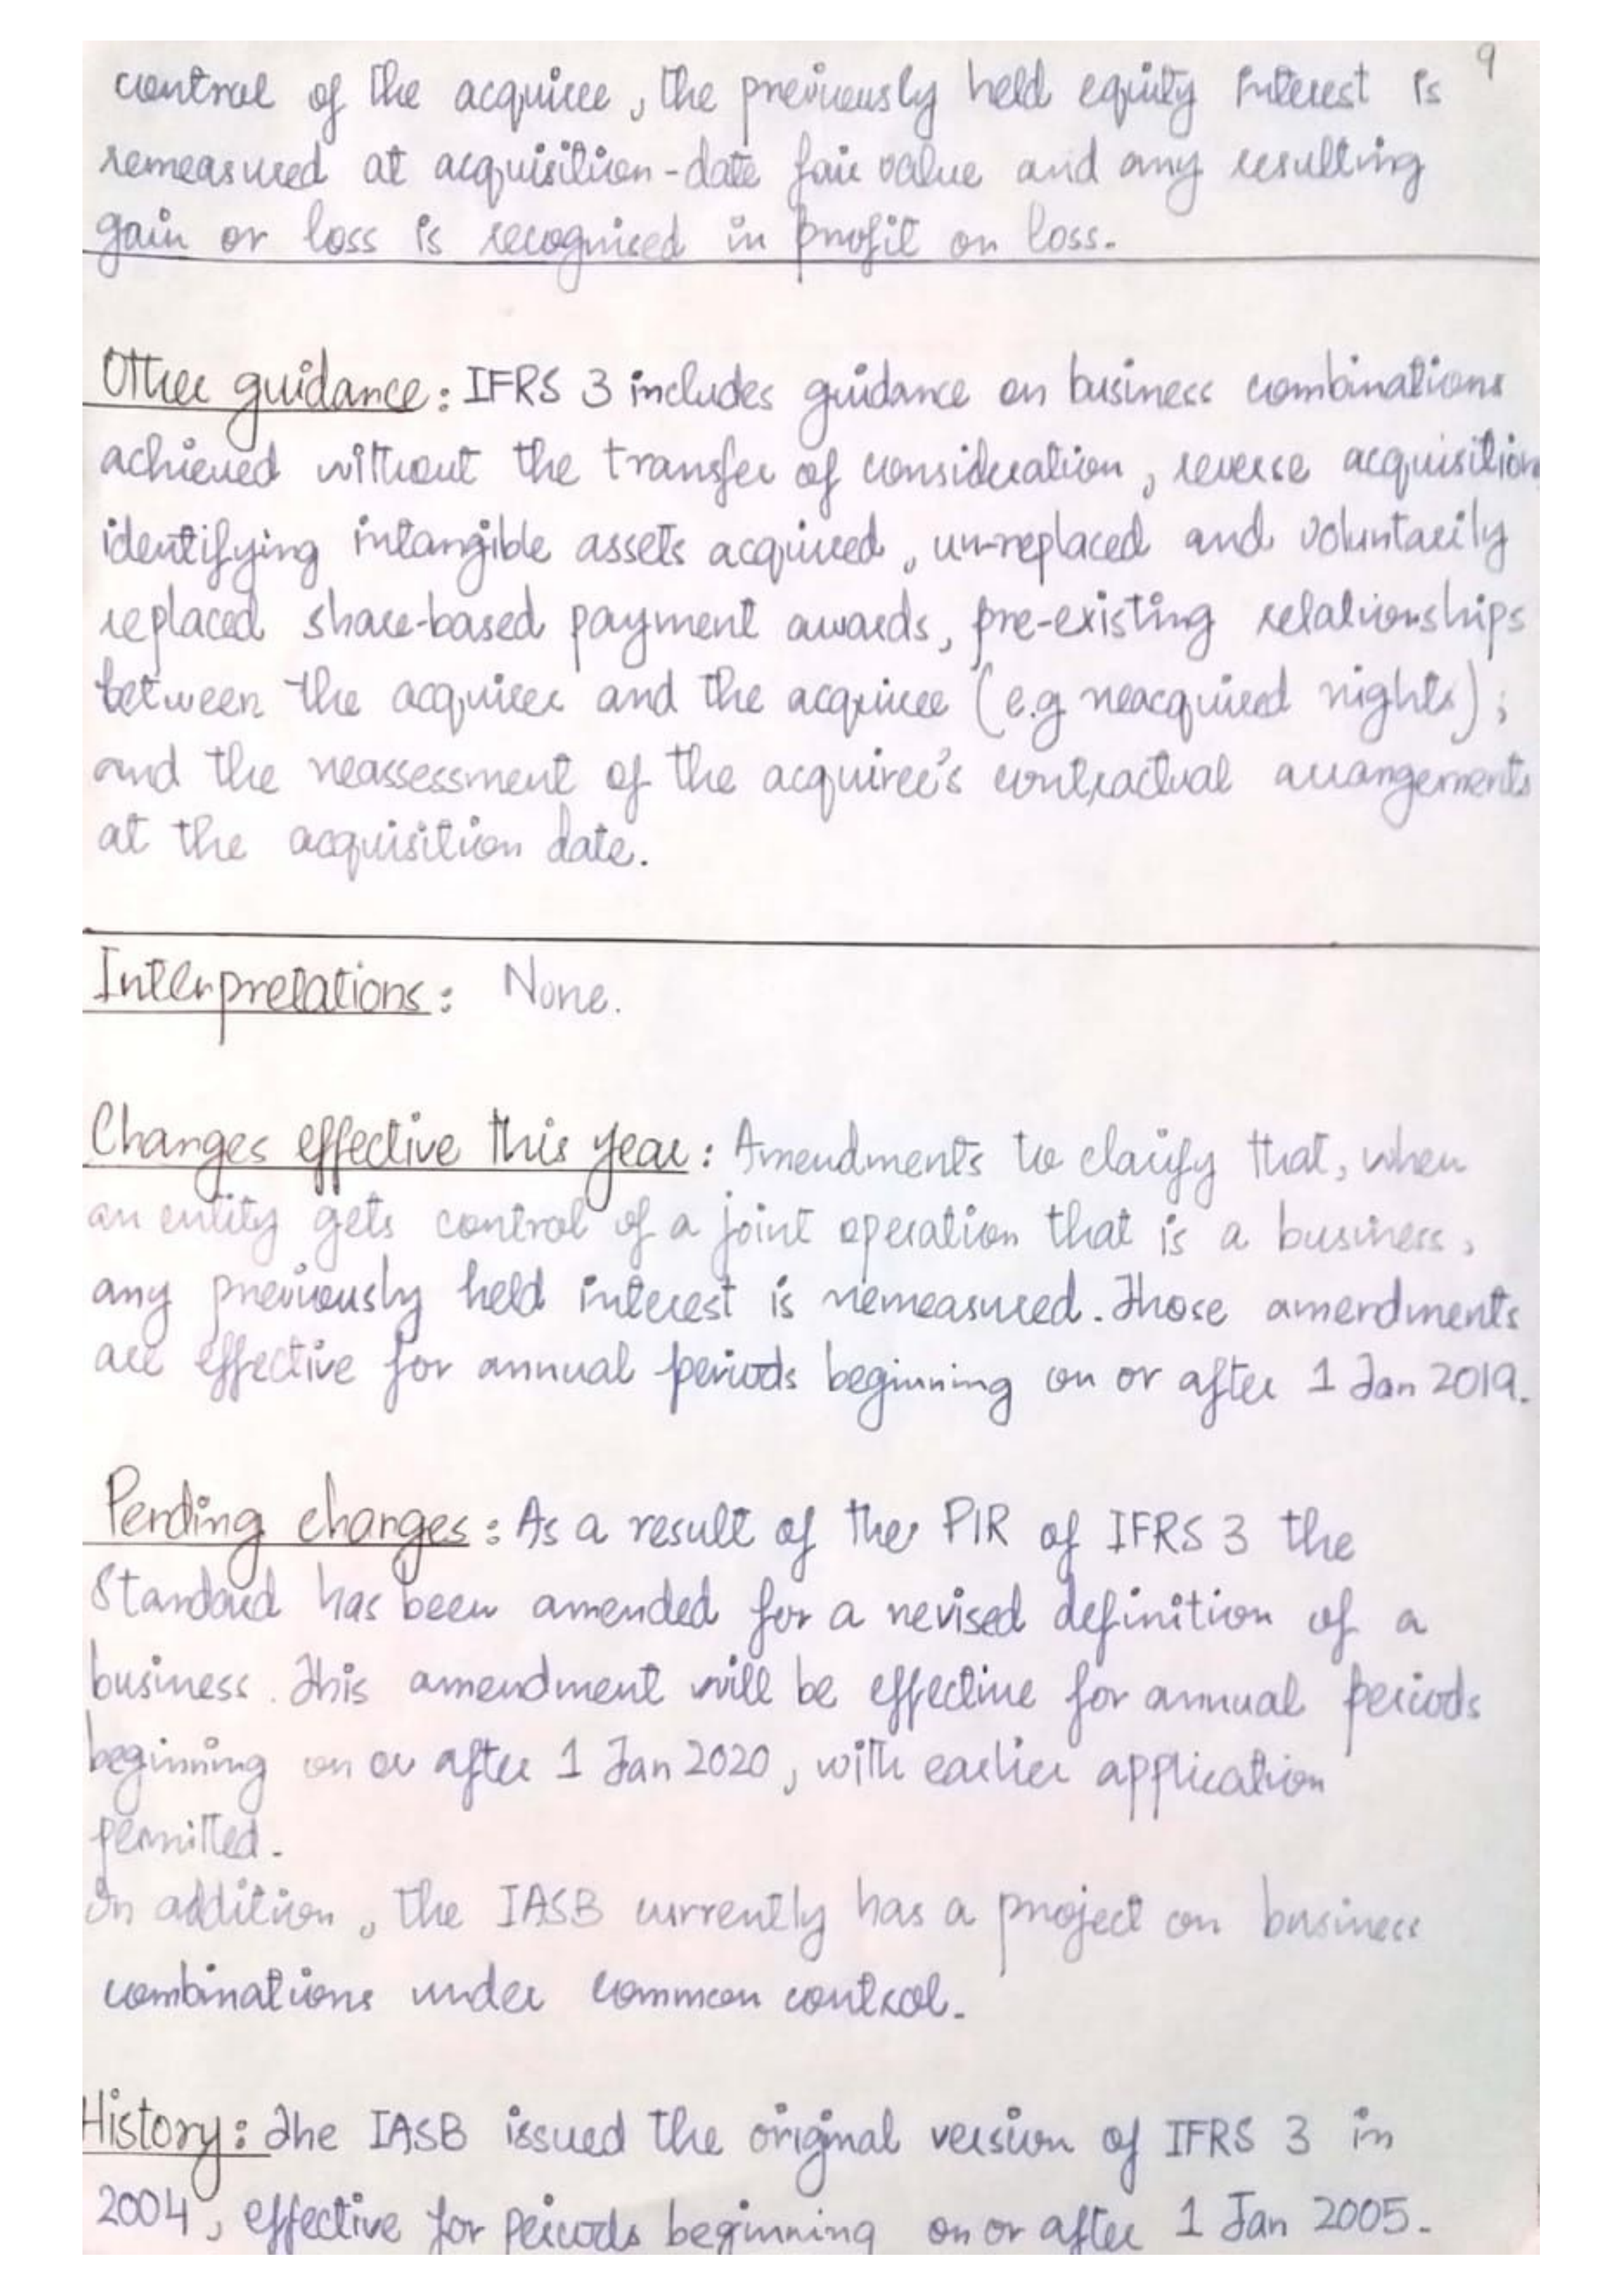 9
control of the acquiree, the previously held equity interest is
remeasured at acquisition-date fair value and any resulting
gain or loss is recognised in profit or loss.
Other guidance: IFRS 3 includes guidance on business combinations
achieved without the transfer of consideration, reverse acquisition
identifying intangible assets acquired, un-replaced and voluntarily
replaced share-based payment awards, pre-existing relationships
between the acquirer and the acquiree (e.g reacquired rights);
and the reassessment of the acquiree's contractual arrangements
at the acquisition date.
Interpretations: None.
Changes effective this year: Amendments to clarify that, when
an entity gets control of a joint operation that is a business,
any previously held interest is remeasured. Those amendments
are effective for annual periods beginning on or after 1 Jan 2019.
Pending changes: As a result of the PIR of IFRS 3 the
Standard has been amended for a revised definition of a
business. This amendment will be effective for annual periods
beginning on or after 1 Jan 2020, with earlier application
permitted.
In addition, the IASB currently has a project on business
combinations under common control.
History: The IASB issued the original version of IFRS 3 in
2004, effective for periods beginning on or after 1 Jan 2005.